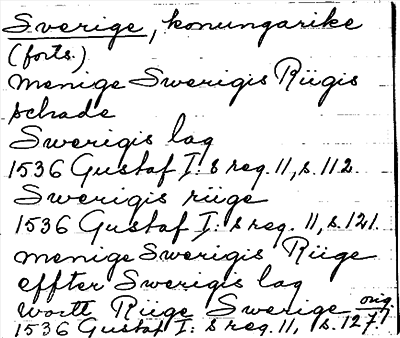 Sverige, konungarike
(forts.)
menige Swerigis Rügis
schade
Swerigis lag
1536 Gustaf I:s reg. 11, s. 112.
Swerigis rüge
1536 Gustaf I:s reg. 11, s. 121.
menige Swerigis Rüge
effter Swerigis lag
wortt Rüge Swerige orig.
1536 Gustaf I:s reg. 11, s. 127.